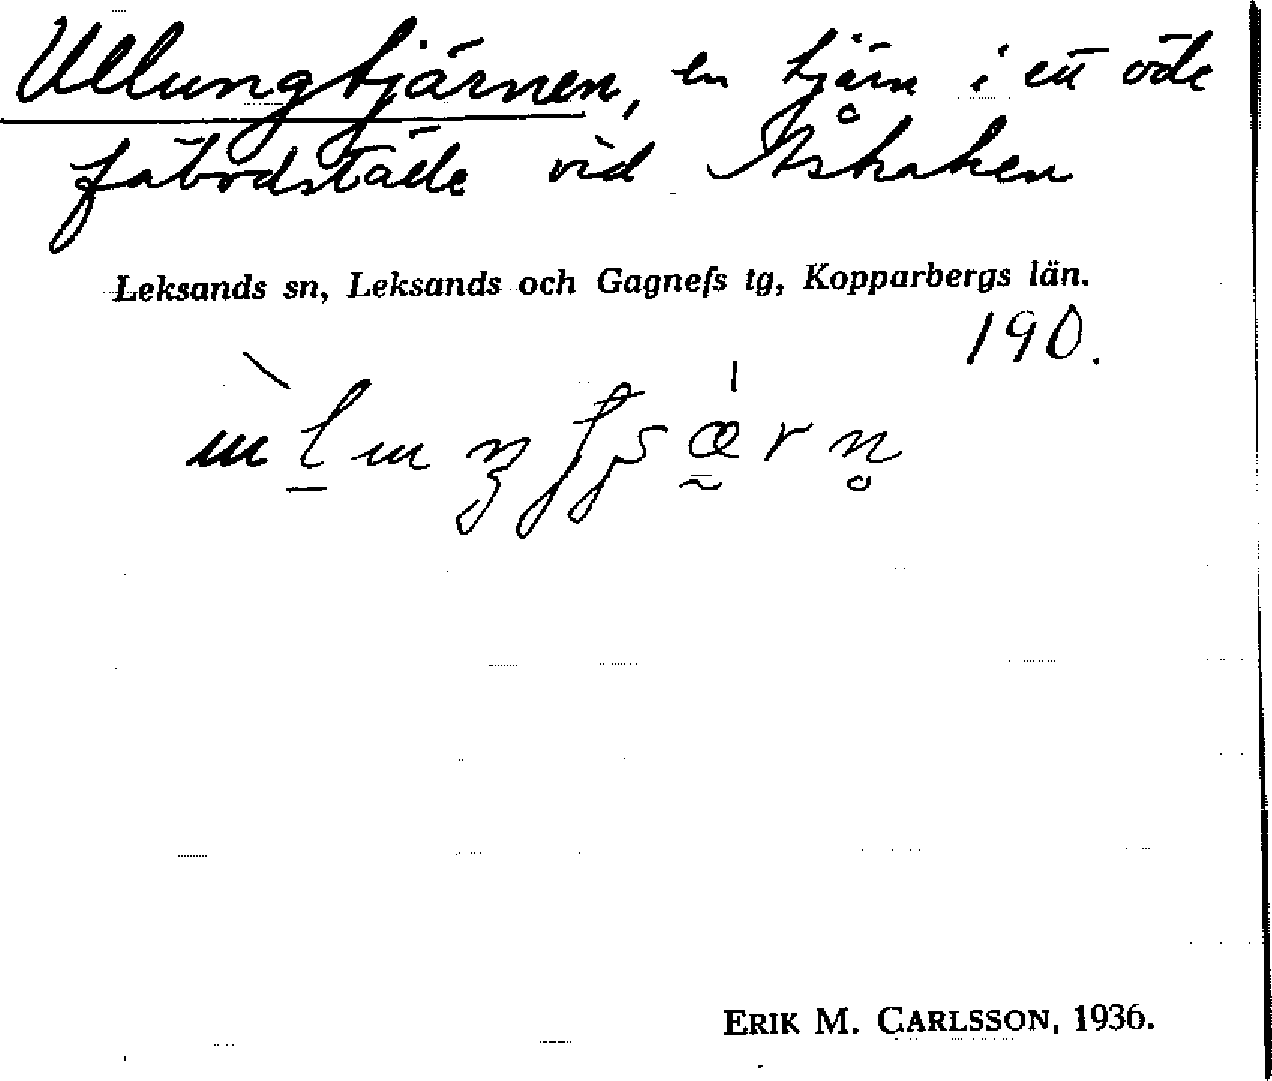 Ullungtjärnen, en tjärn i ett öde
fäbodställe vid Åshaken
Leksands sn, Leksands och Gagnefs tg, Kopparbergs län.
190.
ERIK M. CARLSSON, 1936.